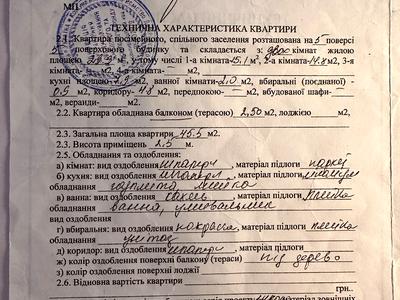 МП
ТЕХНІЧНА ХАРАКТЕРИСТИКА КВАРТИРИ
2.1. Квартира посімейного, спільного заселення розташована на 5 поверсі
5 поверхового будинку та складається з: двох кімнат жилою
площею м2, у тому числі 1-а кімната 15.1 м2, 2-а кімната м2, 3-я
кімната- м2, 4-а кімната- м2,
кухні площею м2, ванної кімнати 2.0 м2, вбиральні (поєднаної) -
0,5 м2, коридору- 4.8 м2, передпокою- — м2, вбудованої шафи- —
м2, веранди- м2.
2.2. Квартира обладнана балконом (терасою) 2,50 м2, лоджією м2.
2.3. Загальна площа квартири 45.5 м2.
2.3. Висота приміщень 2.5 м.
2.5. Обладнання та оздоблення:
а) кімнат: вид оздоблення шпалери, матеріал підлоги паркет
б) кухня: вид оздоблення шпалери, матеріал підлоги
обладнання мийка
в) ванна: вид оздоблення кахель, матеріал підлоги плитка
обладнання ванна, умивальник
вид оздоблення
г) вбиральня: вид оздоблення, матеріал підлоги плитка
обладнання унітаз
д) коридор: вид оздоблення шпалери, матеріал підлоги
ж) колір оздоблення поверхні балкону (тераси) під дерево
з) колір оздоблення поверхні лоджії
2.6. Відновна вартість квартири грн.